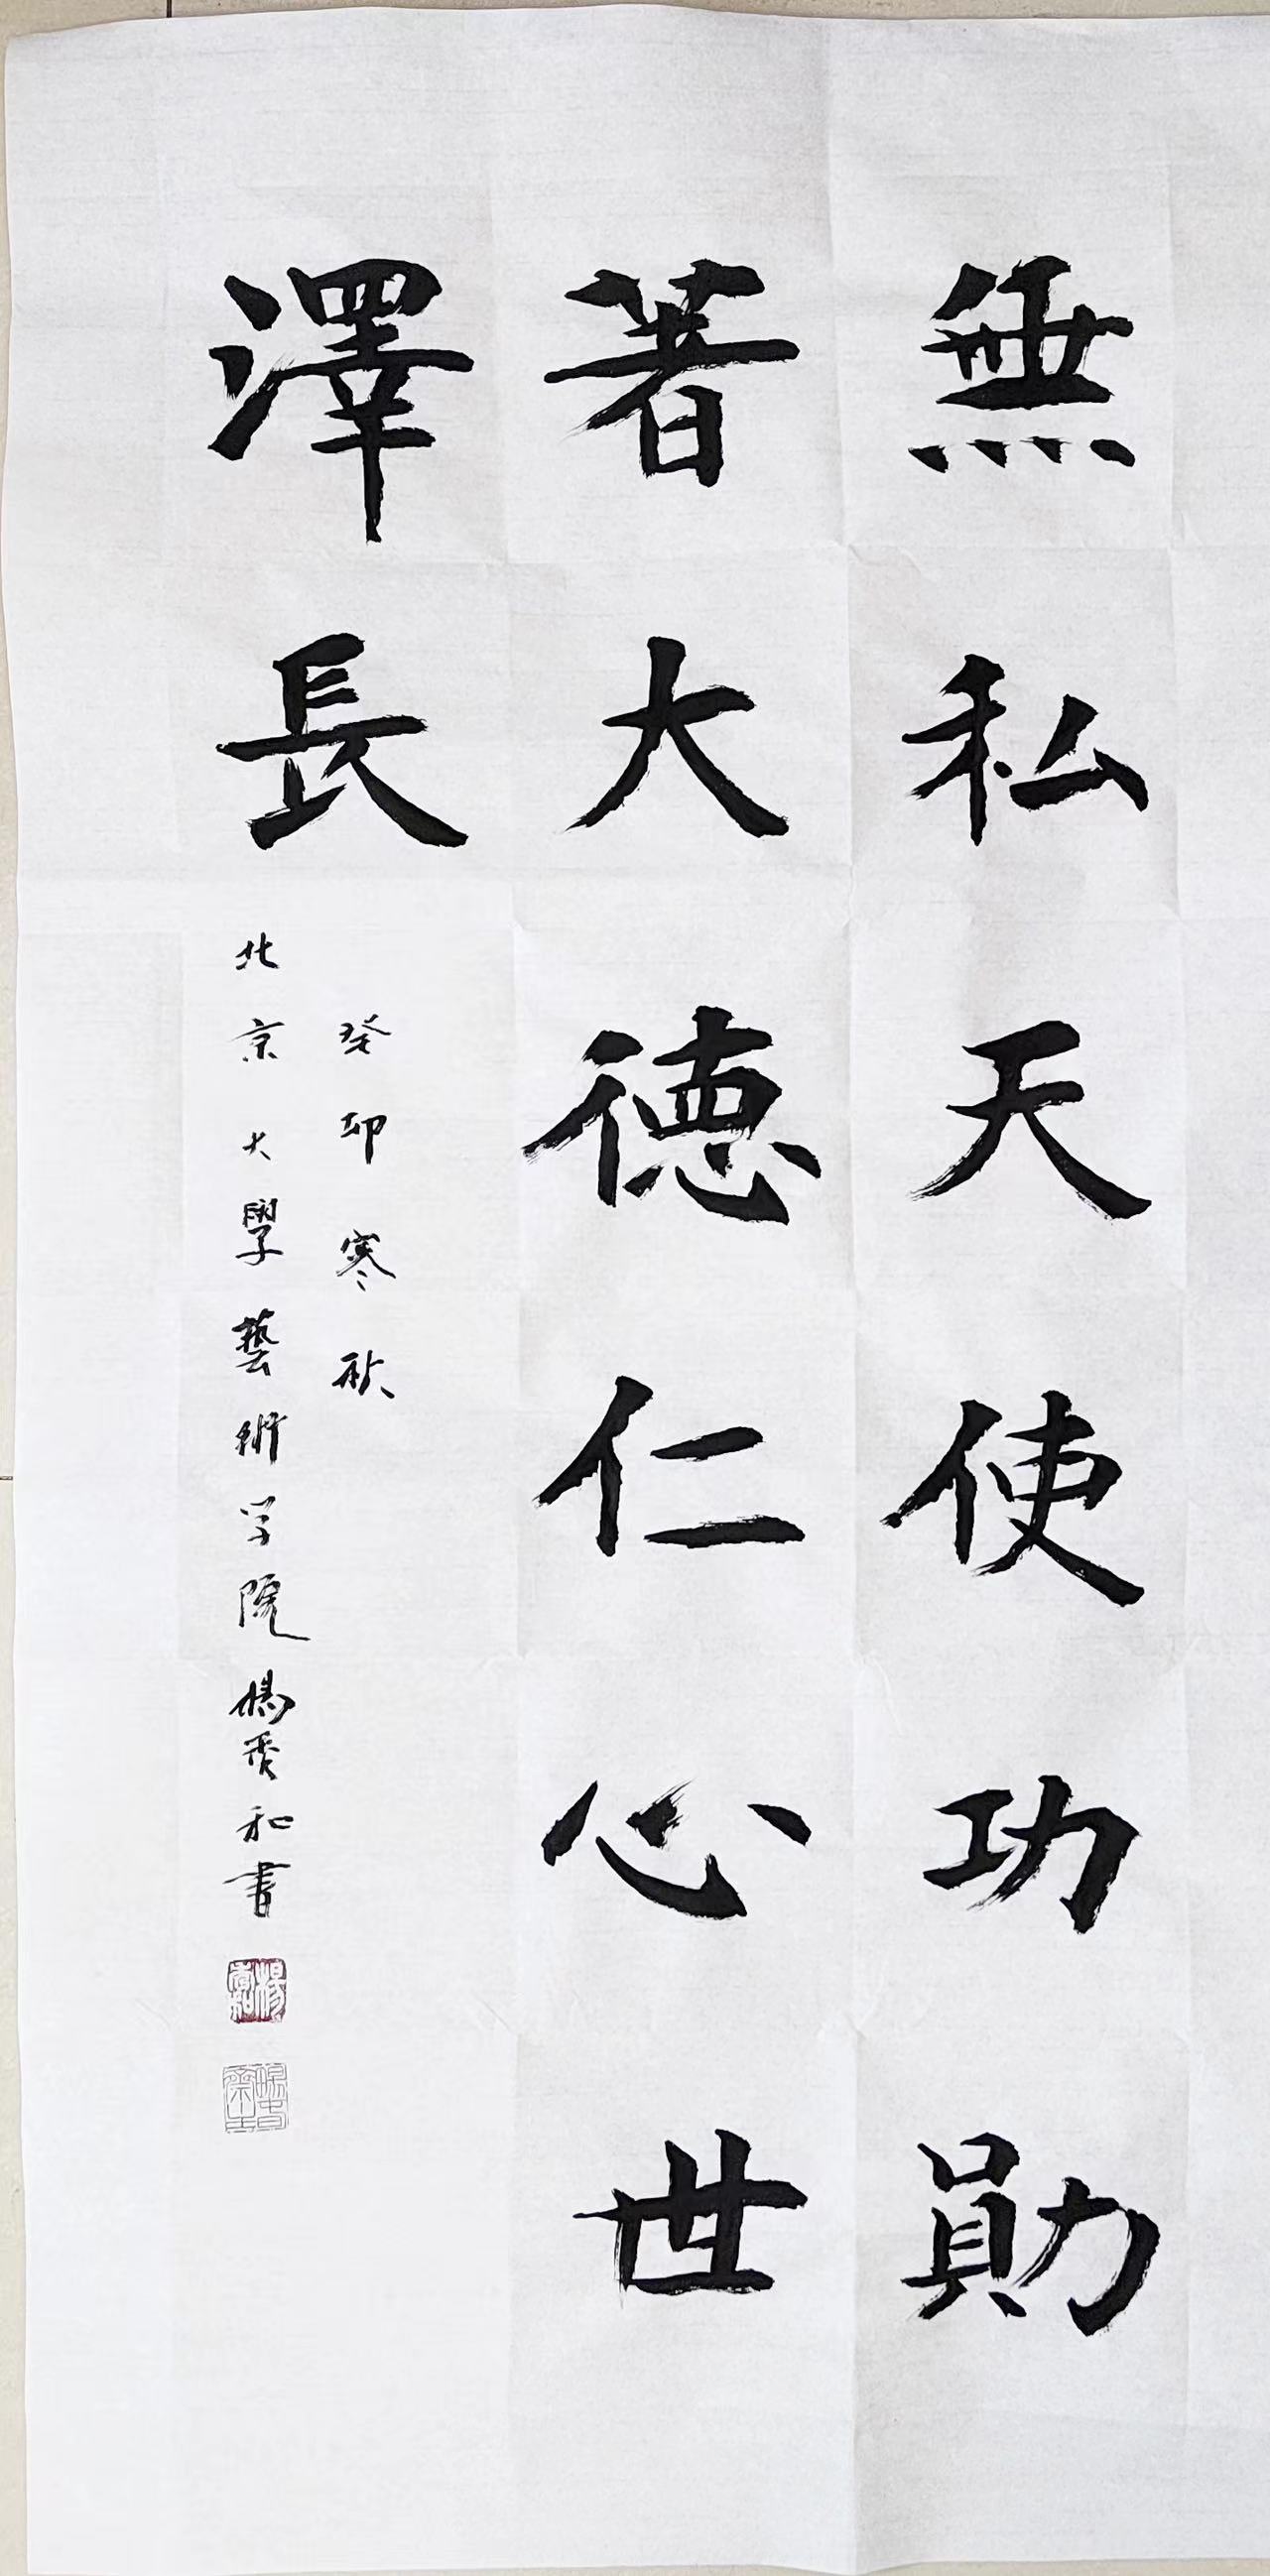 無私天使功勛
著大德仁心世
澤長
癸卯寒秋
北京大學藝術学院楊
和書
楊